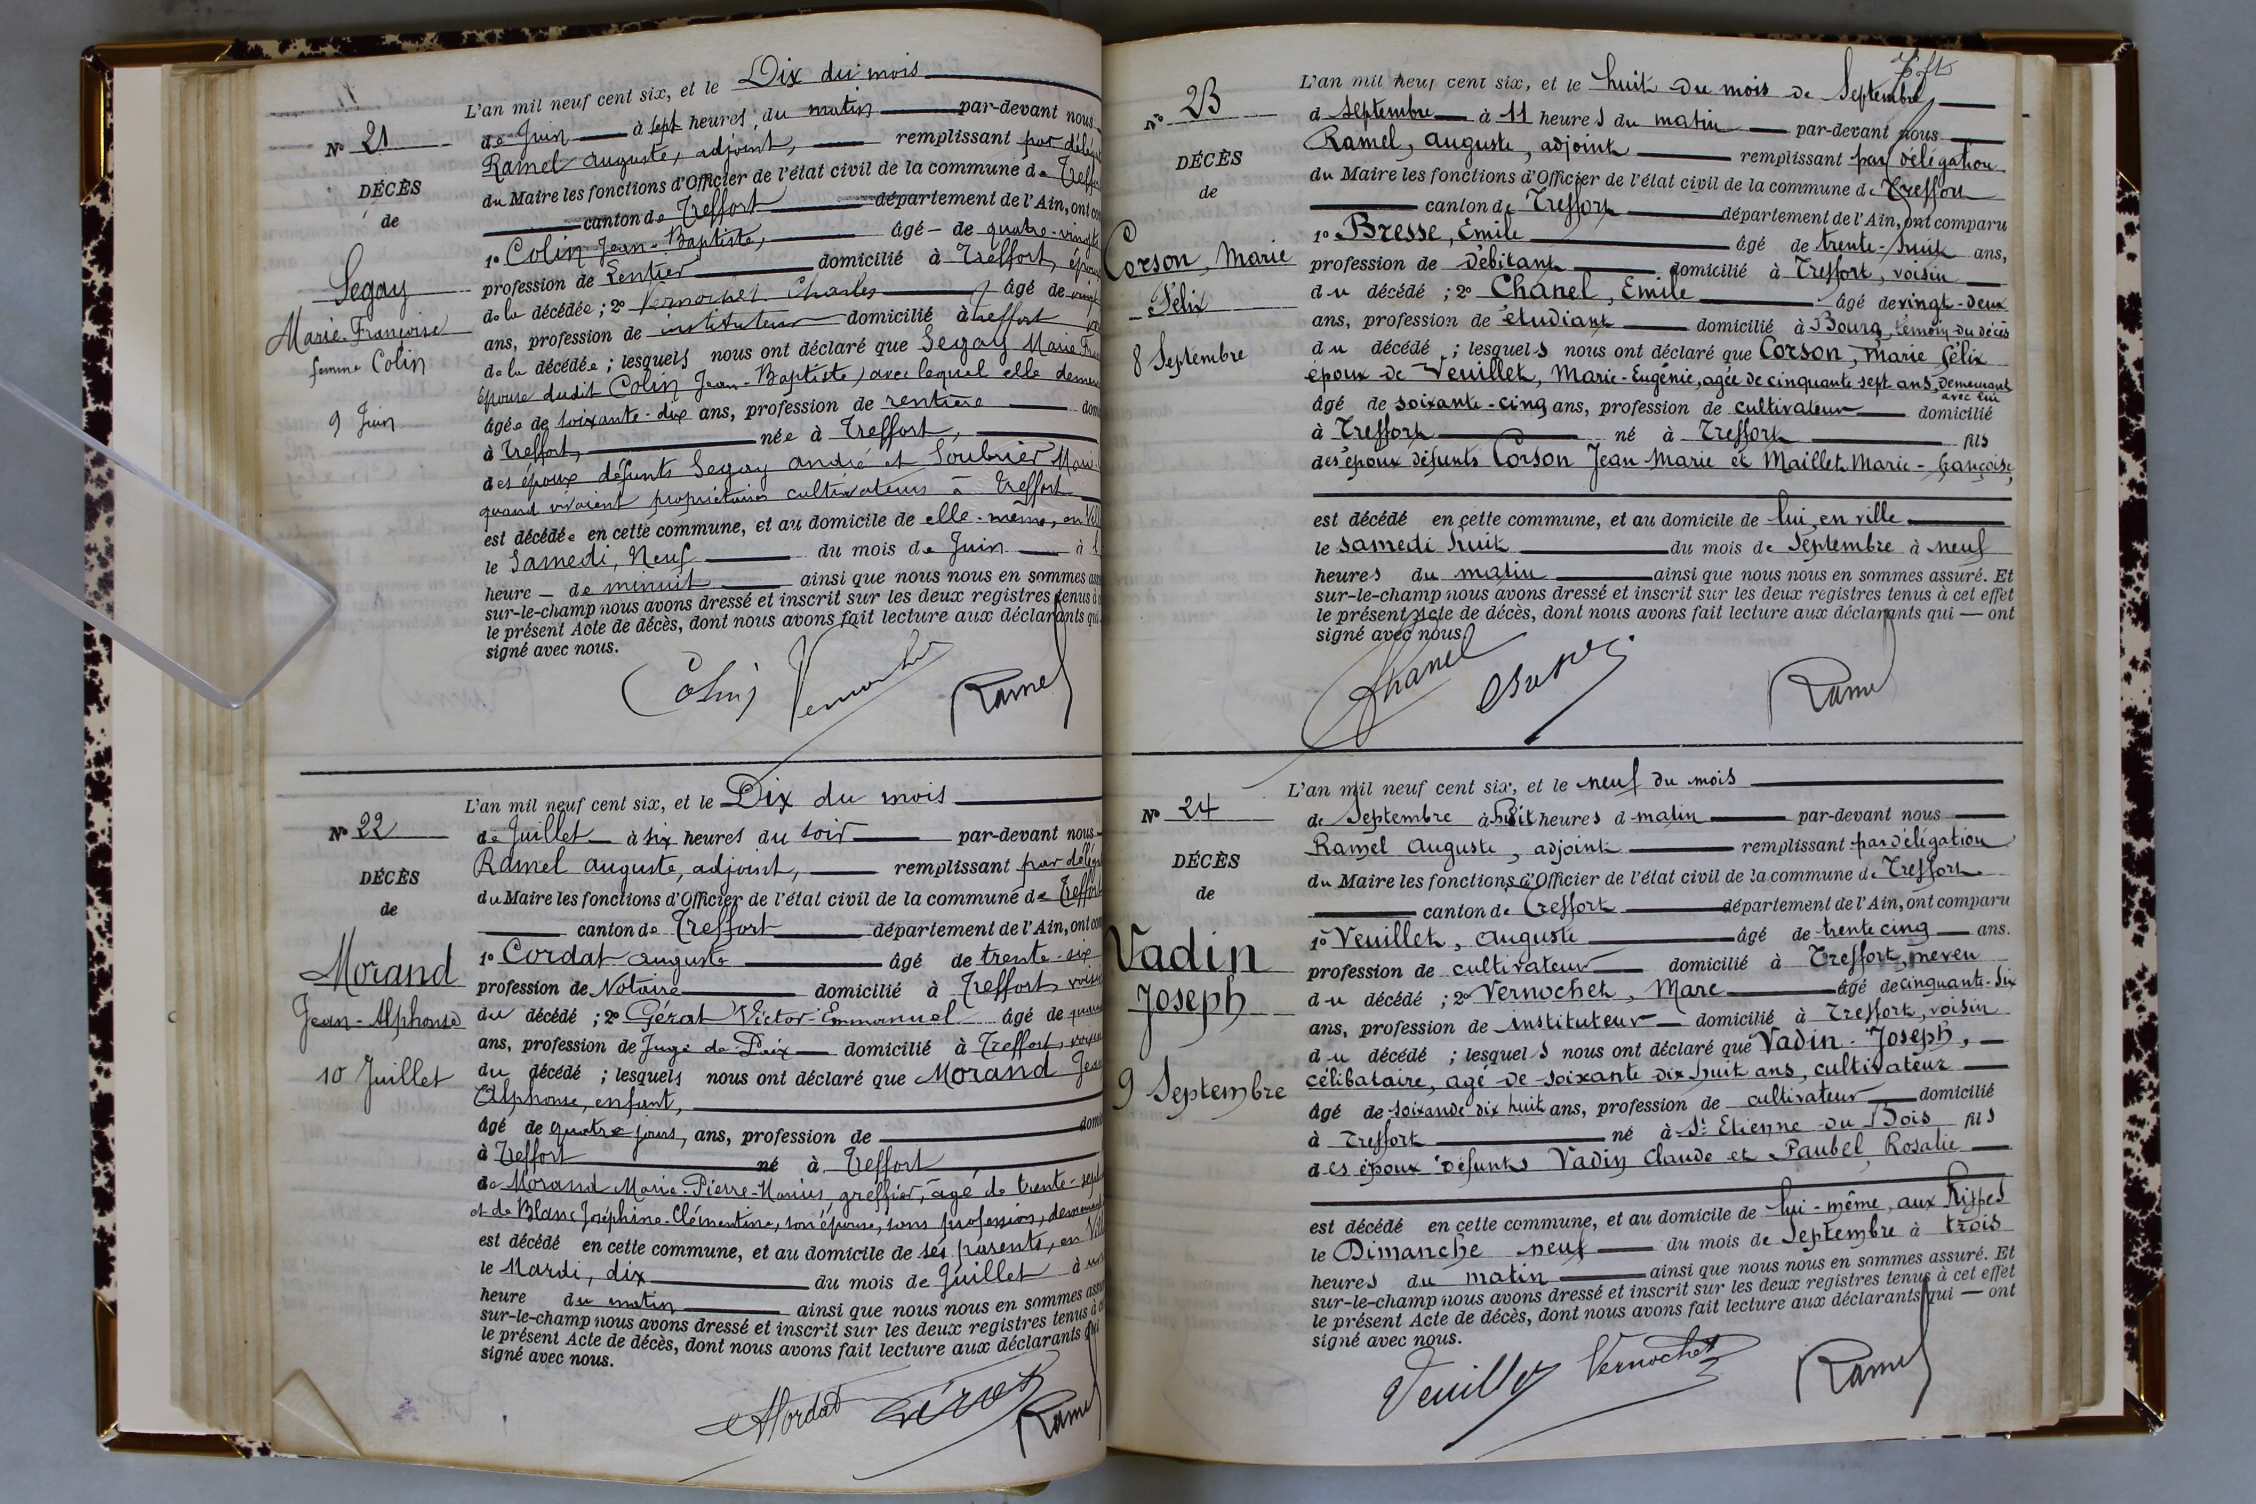 L'an mil neuf cent six, et le Dix du mois
Nº 21
de Juin à sept heures du matin par-devant nous
Ramel Auguste, adjoint, remplissant par délég
DÉCÈS
du Maire les fonctions d'Officier de l'état civil de la commune de Treffor
de
canton de Treffort département de l'Ain, ont com
1º Colin Jean-Baptiste, âgé de quatre-vingts
Segay
profession de rentier domicilié à Treffort, époux
de la décédée ; 2º Vernochet Charles âgé de vingt
Marie-Françoise
ans, profession de instituteur domicilié à Treffort
femme Colin
de la décédée ; lesquels nous ont déclaré que Segay Marie Fran
épouse dudit Colin Jean-Baptiste, avec lequel elle demeu
9 Juin
âgée de soixante-dix ans, profession de rentière dom
à Treffort, née à Treffort,
des époux défunts Segay André et Soubrier Mari
quand vivaient propriétaires cultivateurs à Treffort
est décédée en cette commune, et au domicile de elle-même, en Vill
le Samedi, Neuf du mois de Juin à
heure de minuit ainsi que nous nous en sommes ass
sur-le-champ nous avons dressé et inscrit sur les deux registres tenus à
le présent Acte de décès, dont nous avons fait lecture aux déclarants qui
signé avec nous.
Colin Vernochet Ramel
L'an mil neuf cent six, et le Dix du mois
Nº 22
de Juillet à six heures du soir par-devant nous
Ramel Auguste, adjoint, remplissant par délég
DÉCÈS
du Maire les fonctions d'Officier de l'état civil de la commune de Treffort
de
canton de Treffort département de l'Ain, ont com
1º Cordat Auguste âgé de trente-six
Morand
profession de Notaire domicilié à Treffort, voisin
Jean-Alphonse
du décédé ; 2º Gérat Victor-Emmanuel âgé de
ans, profession de Juge de Paix domicilié à Treffort, voisin
10 Juillet
du décédé ; lesquels nous ont déclaré que Morand Jean
Alphonse, enfant,
âgé de quatre jours, ans, profession de domi
à Treffort né à Treffort
de Morand Marie-Pierre-Marius, greffier, âgé de trente-sept
et de Blanc Joséphine-Clémentine, son épouse, sans profession, demeurant
est décédé en cette commune, et au domicile de ses parents, en Vill
le Mardi, dix du mois de Juillet à
heure du matin ainsi que nous nous en sommes assu
sur-le-champ nous avons dressé et inscrit sur les deux registres tenus à c
le présent Acte de décès, dont nous avons fait lecture aux déclarants qui
signé avec nous.
Ramel
L'an mil neuf cent six, et le huit du mois de Septembre
Nº 23
d septembre à 11 heures du matin par-devant nous
Ramel, Auguste, adjoint remplissant par délégation
DÉCÈS
du Maire les fonctions d'Officier de l'état civil de la commune de Treffort
de
canton de Treffort département de l'Ain, ont comparu
1º Bresse, Emile âgé de trente-huit ans,
Corson, Marie
profession de débitant domicilié à Treffort, voisin
Félix
du décédé ; 2º Chanel, Emile âgé de vingt-deux
ans, profession de étudiant domicilié à Bourg, témoin du décès
8 Septembre
du décédé ; lesquels nous ont déclaré que Corson, Marie Félix
époux de Veuillet, Marie-Eugénie, agée de cinquante sept ans, demeurant
avec lui
âgé de soixante-cinq ans, profession de cultivateur domicilié
à Treffort né à Treffort fils
des époux défunts Corson Jean Marie et Maillet Marie-Françoise,
est décédé en cette commune, et au domicile de lui, en ville
le samedi huit du mois de Septembre à neuf
heures du matin ainsi que nous nous en sommes assuré. Et
sur-le-champ nous avons dressé et inscrit sur les deux registres tenus à cet effet
le présent Acte de décès, dont nous avons fait lecture aux déclarants qui — ont
signé avec nous.
Chanel Ramel
L'an mil neuf cent six, et le neuf du mois
Nº 24
de Septembre à huit heures d matin par-devant nous
Ramel Auguste, adjoint remplissant par délégation
DÉCÈS
du Maire les fonctions d'Officier de l'état civil de la commune de Treffort
de
canton de Treffort département de l'Ain, ont comparu
1º Veuillet, Auguste âgé de trente cinq ans.
Vadin
profession de cultivateur domicilié à Treffort, neveu
Joseph
du décédé ; 2º Vernochet, Marc âgé de cinquante-six
ans, profession de instituteur domicilié à Treffort, voisin
du décédé ; lesquels nous ont déclaré que Vadin Joseph,
9 Septembre
célibataire, agé de soixante dix huit ans, cultivateur
âgé de soixande dix huit ans, profession de cultivateur domicilié
à Treffort né à St Etienne du Bois fils
des époux défunts Vadin Claude et Paubel Rosalie
est décédé en cette commune, et au domicile de lui-même, aux Rippes
le Dimanche neuf du mois de Septembre à trois
heures du matin ainsi que nous nous en sommes assuré. Et
sur-le-champ nous avons dressé et inscrit sur les deux registres tenus à cet effet
le présent Acte de décès, dont nous avons fait lecture aux déclarants qui — ont
signé avec nous.
Veuillet Vernochet Ramel